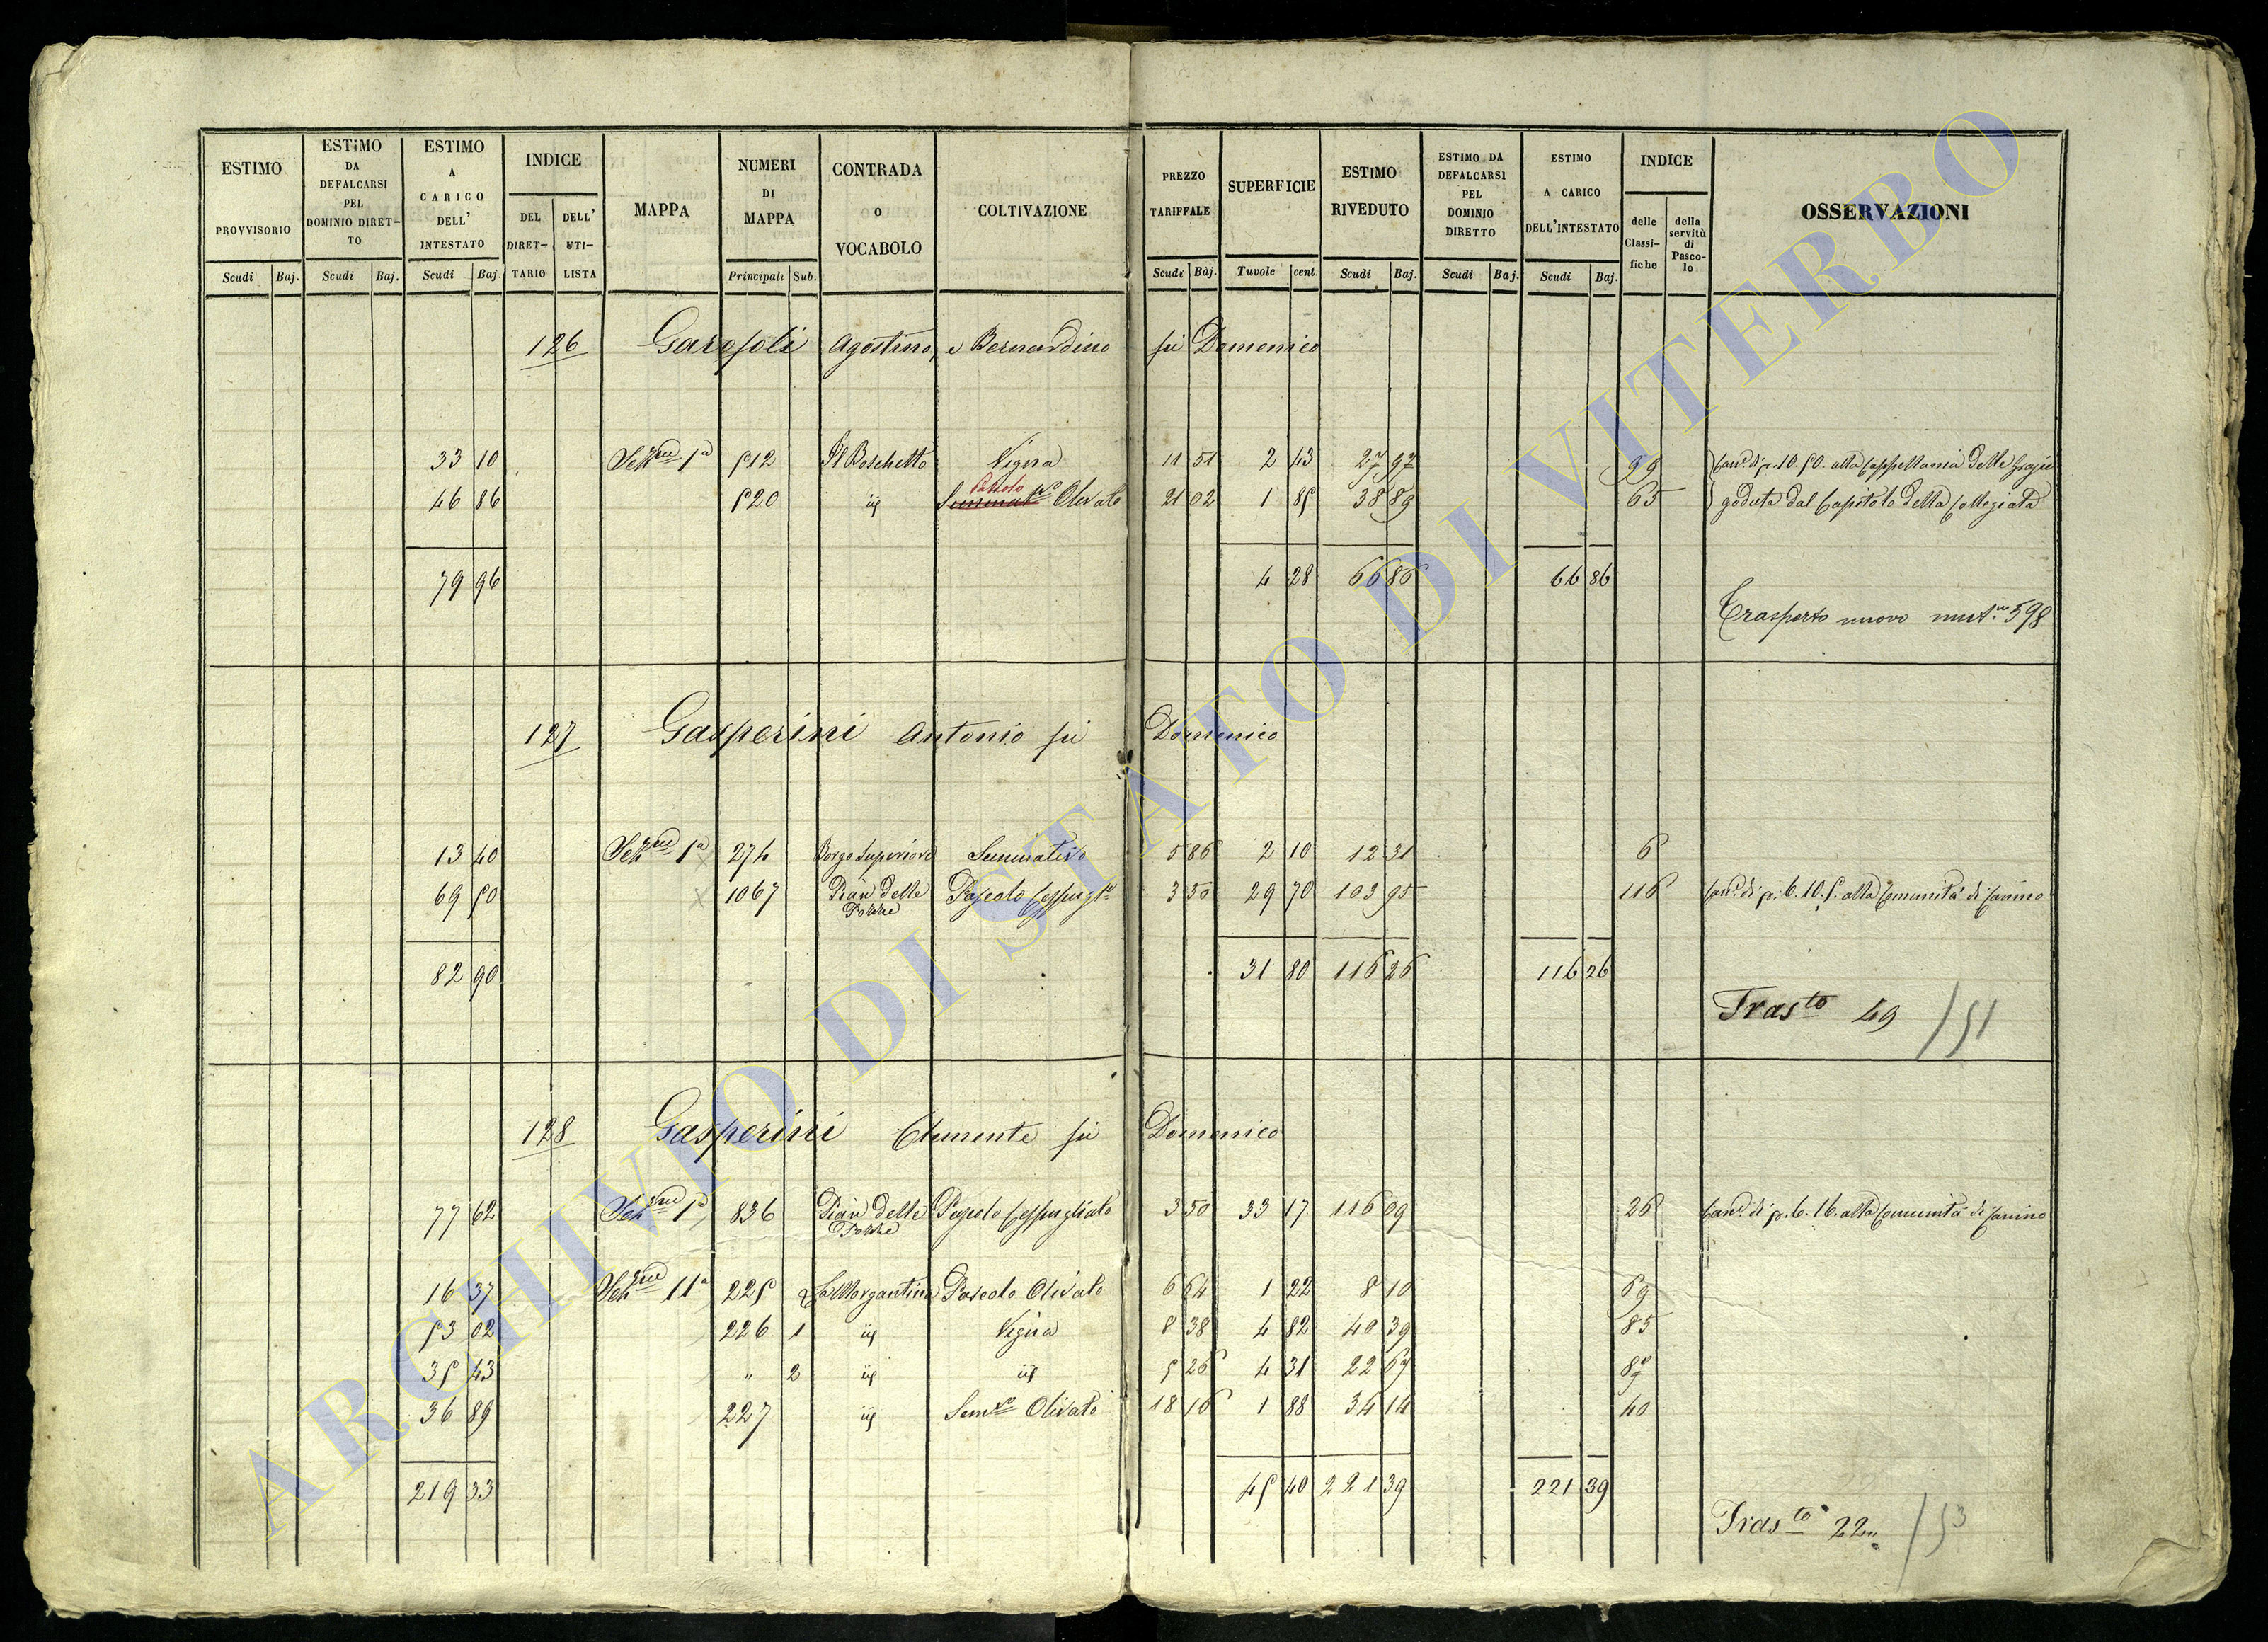 ESTIMO PROVVISORIO
ESTIMO DA DEFALCARSI PEL DOMINIO DIRETTO
ESTIMO A CARICO DELL' INTESTATO
INDICE
DEL DIRETTARIO
DELL' UTILISTA
MAPPA
NUMERI DI MAPPA
CONTRADA o VOCABOLO
COLTIVAZIONE
PREZZO TARIFFALE
SUPERFICIE
ESTIMO RIVEDUTO
ESTIMO DA DEFALCARSI PEL DOMINIO DIRETTO
ESTIMO A CARICO DELL'INTESTATO
INDICE
delle Classifiche
della servitù di Pascolo
OSSERVAZIONI
Scudi Baj. Scudi Baj. Scudi Baj. Principali Sub. Scudi Baj. Tavole cent. Scudi Baj. Scudi Baj. Scudi Baj.
126 Garofoli Agostino, e Bernardino fu Domenico
33 10 Sezne 1a 512 Il Boschetto Vigna 11 51 2 43 27 97 99 Cane di p. 10. 50. alla Cappellania delle Grazie
46 86 520 iij Pascolo Olivato 21 02 1 85 38 89 65 goduta dal Capitolo della Collegiata
79 96 4 28 66 86 66 86
Trasporto nuovo mut. 598
127 Gasperini Antonio fu Domenico
13 40 Sezne 1a 274 Borgo Superiore Seminativo 5 86 2 10 12 31 6
69 50 1067 Pian delle Pozze Pascolo Cespugl. 3 50 29 70 103 95 116 Cane di p. 6. 10. 5. alla Comunità di Canino
82 90 31 80 116 26 116 26
Trasto 49 / 51
128 Gasperini Clemente fu Domenico
77 62 Sezne 1a 836 Pian delle Pozze Pascolo Cespugliato 3 50 33 17 116 09 26 Cane di p. 6. 16. alla Comunità di Canino
16 37 Sezne 11a 225 La Morgantina Pascolo Olivato 6 64 1 22 8 10 69
53 02 226 1 iij Vigna 8 38 4 82 40 39 85
35 43 " 2 iij iij 5 26 4 31 22 67 87
36 89 227 iij Semvo Olivato 18 16 1 88 34 14 40
219 33 45 40 221 39 221 39
Trasto 22 / 53
ARCHIVIO DI STATO DI VITERBO